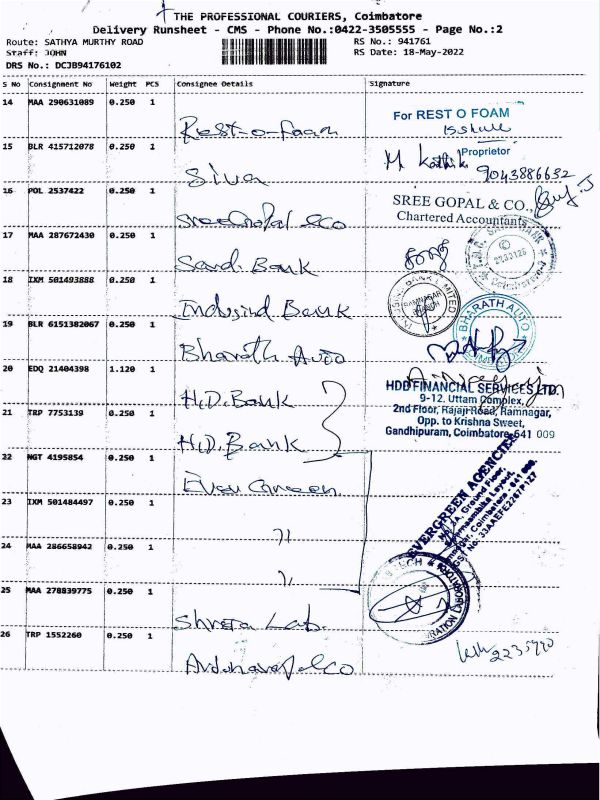 THE PROFESSIONAL COURIERS, Coimbatore
Delivery Runsheet - CMS - Phone No.:0422-3505555 - Page No.:2
Route: SATHYA MURTHY ROAD
RS No.: 941761
Staff: JOHN
RS Date: 18-May-2022
DRS No.: DCJB94176102
S No Consignment No Weight PCS Consignee Details Signature
14 MAA 290631089 0.250 1
Rest-o-foam
For REST O FOAM
Proprietor
15 BLR 415712078 0.250 1
Siva
M. Karthik
9043886632
16 POL 2537422 0.250 1
Sree Gopal & Co
SREE GOPAL & CO.,
Chartered Accountants
17 MAA 287672430 0.250 1
Sard. Bank
18 IXM 501493888 0.250 1
Indusind Bank
19 BLR 6151382067 0.250 1
Bharath Auto
BHARATH AUTO
20 EDQ 21404398 1.120 1
H.D. Bank
HDD FINANCIAL SERVICES LTD.
9-12, Uttam Complex,
2nd Floor, Rajaji Road, Ramnagar,
Opp. to Krishna Sweet,
Gandhipuram, Coimbatore-641 009
21 TRP 7753139 0.250 1
H.D. Bank
22 NGT 4195854 0.250 1
Ever Green
EVERGREEN AGENCIES
23 IXM 501484497 0.250 1
"
24 MAA 286658942 0.250 1
"
25 MAA 278839775 0.250 1
Shreta Lab.
26 TRP 1552260 0.250 1
2235770